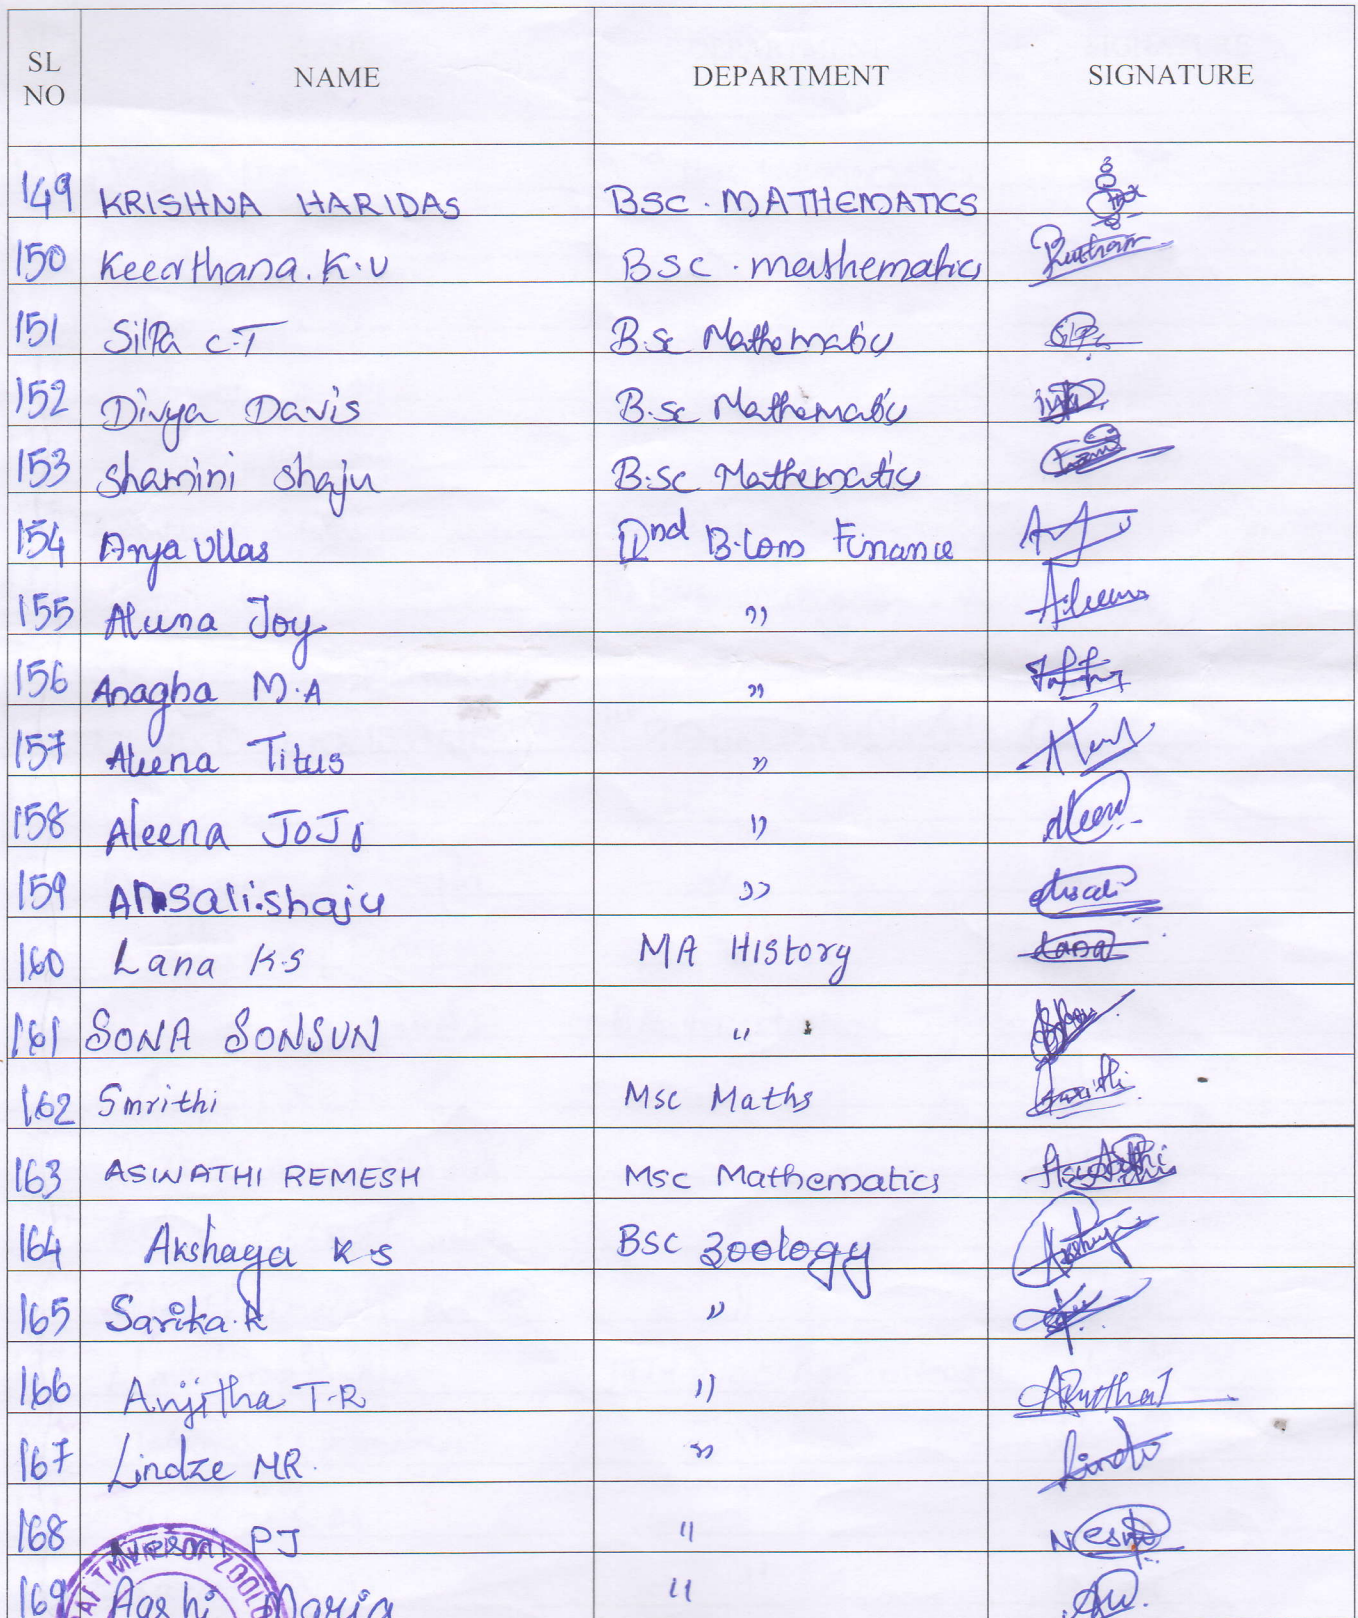 SL NO NAME DEPARTMENT SIGNATURE
149 KRISHNA HARIDAS BSC. MATHEMATICS
150 Keerthana. K.U BSC. mathematics
151 Silpa C.T B.Sc Mathematics
152 Divya Davis B.sc Mathematics
153 Shamini Shaju B.Sc Mathematics
154 Arya Ullas IInd B.Com Finance
155 Aleena Joy ,,
156 Anagha M.A ,,
157 Aleena Titus ,,
158 Aleena JoJo ,,
159 Ansali.shaju ,,
160 Lana K.S MA History Lana
161 SONA SONSUN ,,
162 Smrithi Msc Maths Smrithi
163 ASWATHI REMESH Msc Mathematics Aswathi
164 Akshaya K S BSC Zoology
165 Sarika.K ,,
166 Anjitha T.R ,,
167 Lindze MR. ,,
168 PJ ,,
169 Aarhi Maria ,,